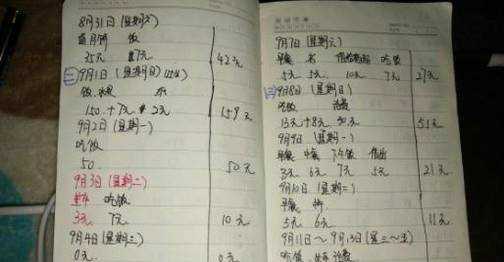 8月31日(星期六)
饭
35元 7元 42元
9月1日(星期日)
饭
150 + 7元 2元 159元
9月2日(星期一)
吃饭
50 50元
9月3日(星期二)
吃饭
3元 7元 10元
9月4日(星期三)
0元 0元
9月7日(星期六)
早餐 水 吃饭
5元 5元 10元 7元 27元
9月8日(星期日)
吃饭 话费
13元+8元 30元 51元
9月9日(星期一)
早餐 中餐 下午饭
3元 6元 7元 5元 21元
9月10日(星期二)
早餐
5元 6元 11元
9月11日~9月13日(星三~五)
吃饭 话费